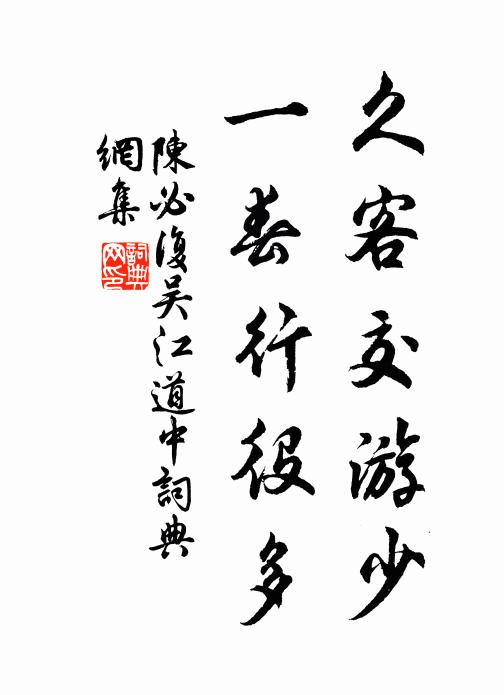 久客交游少
一春行役多
陳必復吴江道中詞典
網集
詞典網印